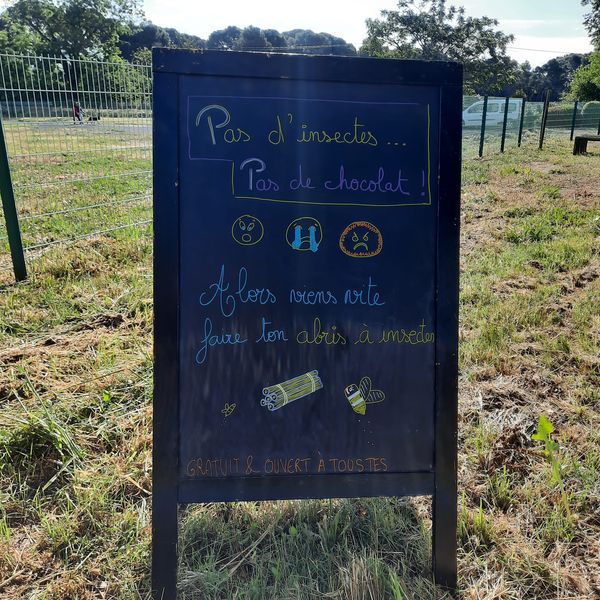 Pas d'insectes...
Pas de chocolat !
Alors viens vite
faire ton abris à insectes
GRATUIT & OUVERT À TOUS.TES